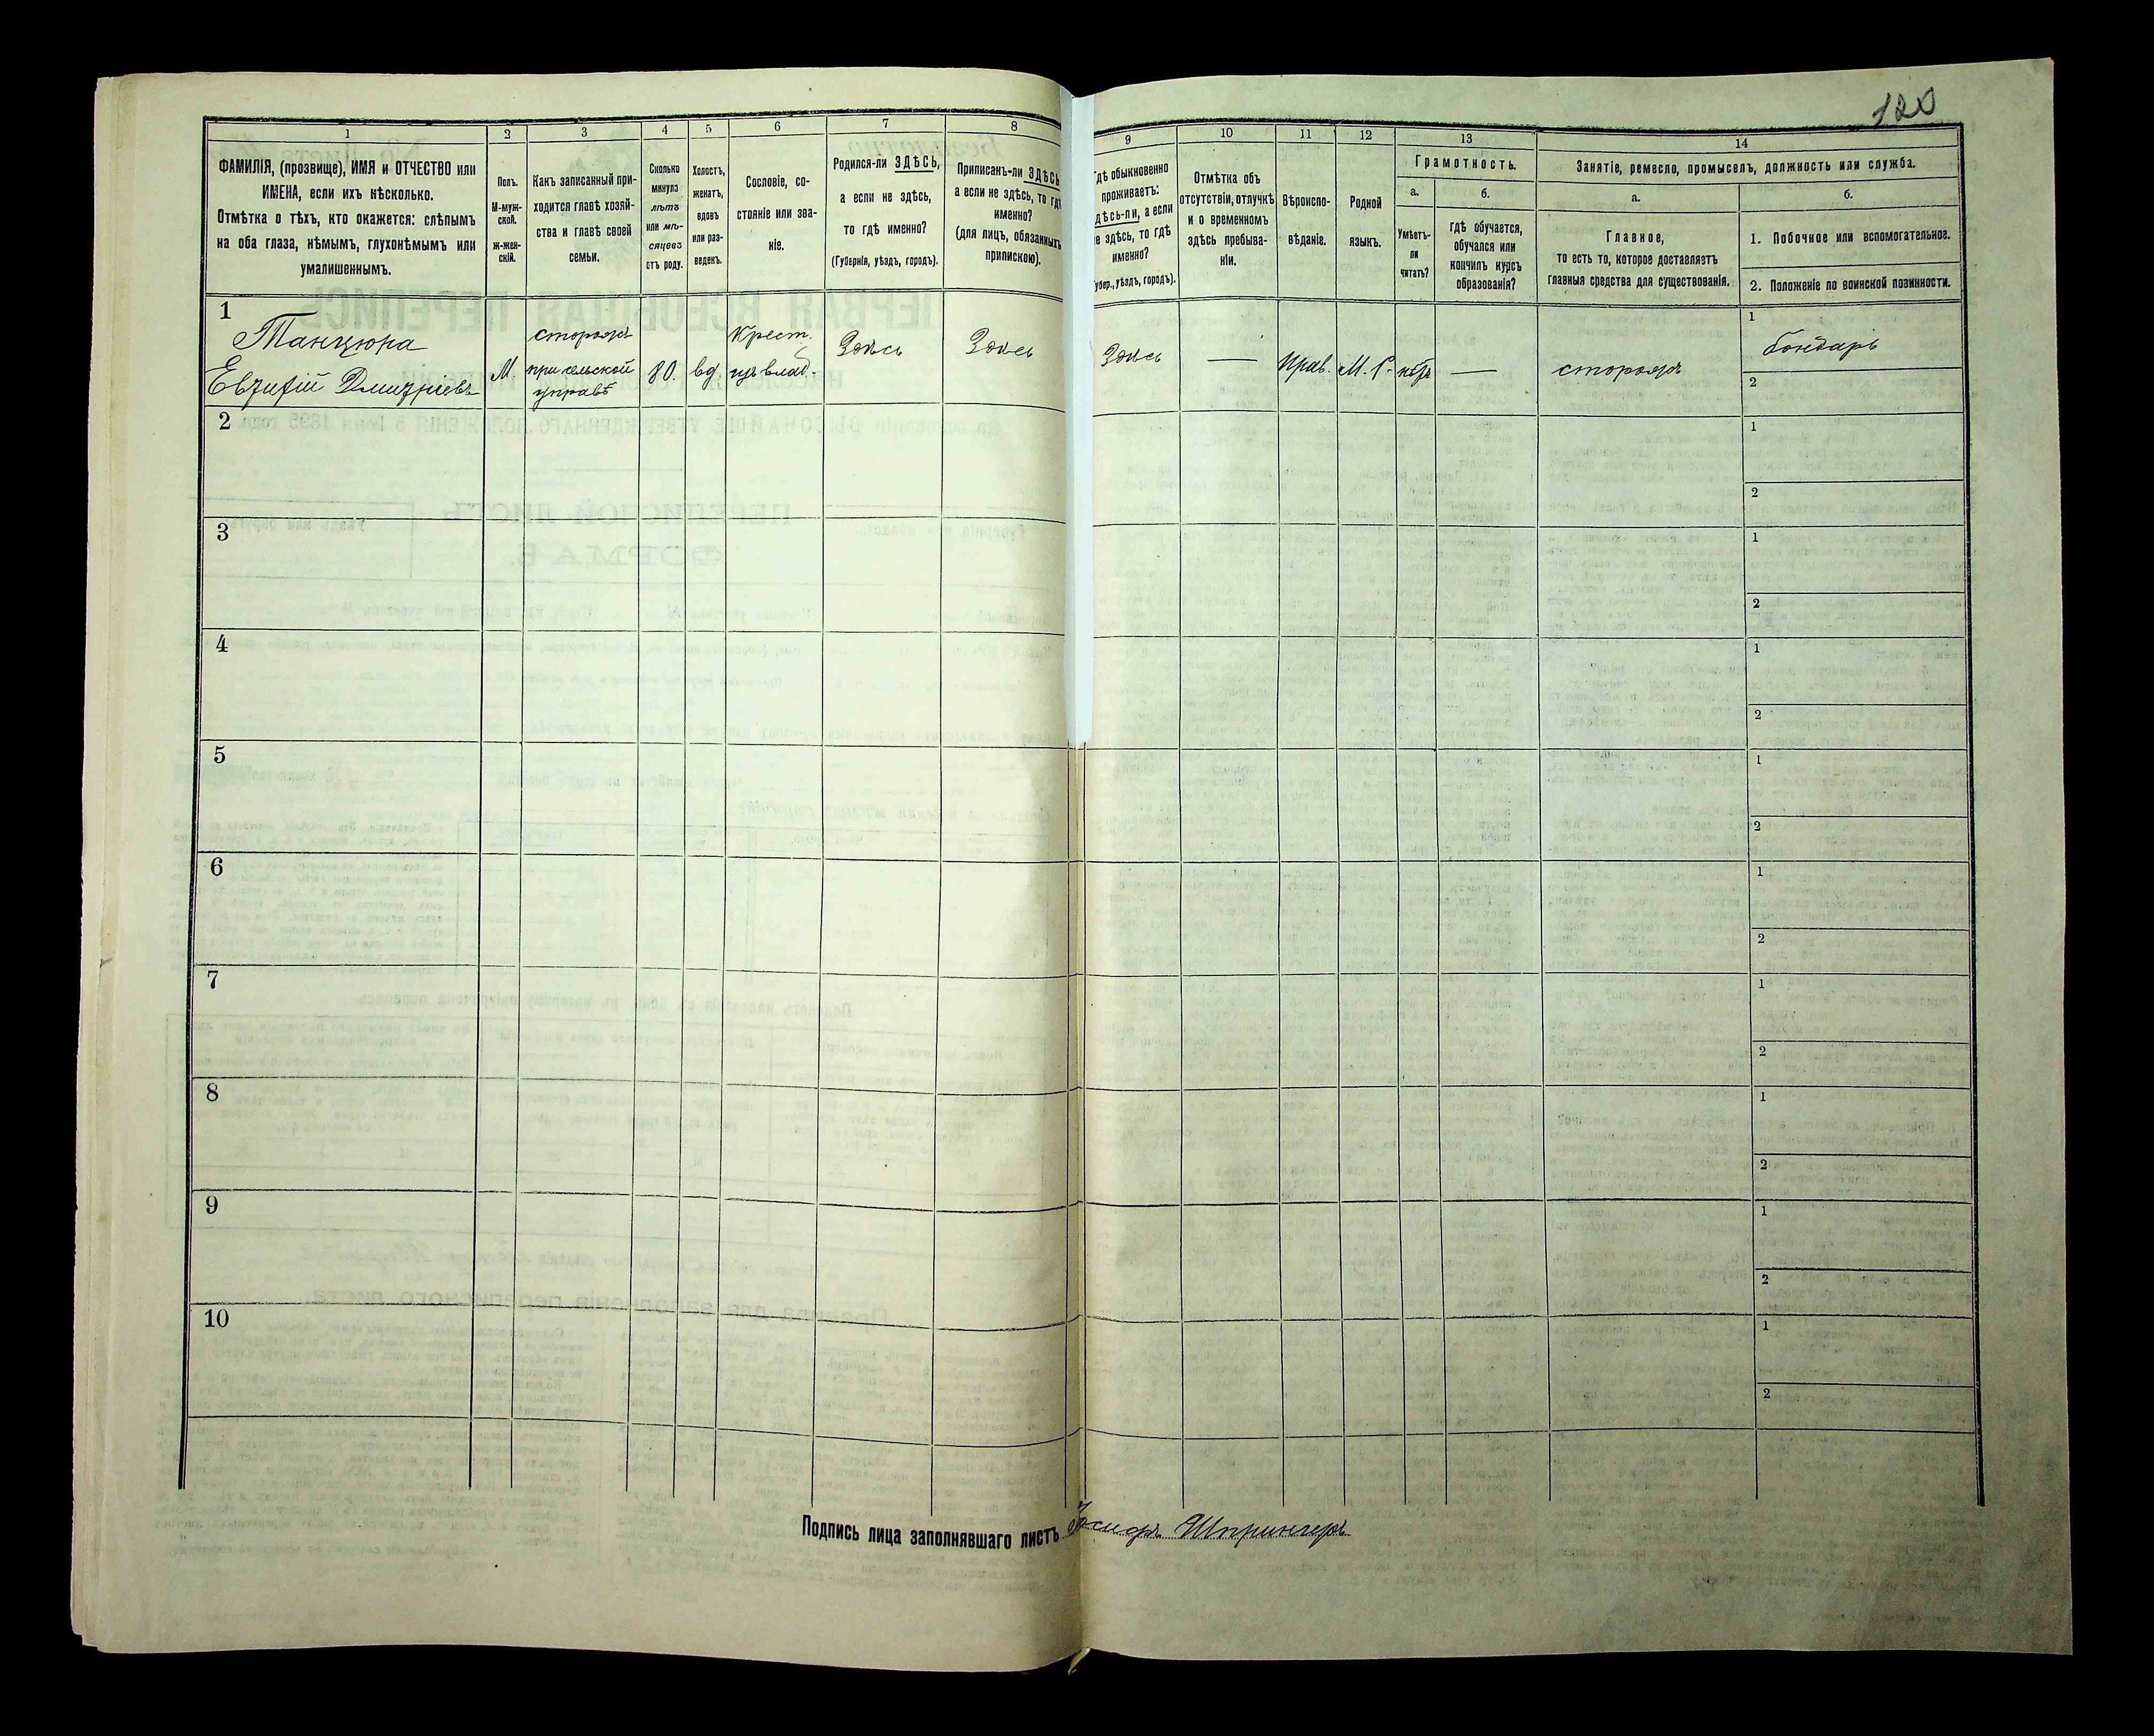 120
1
ФАМИЛІЯ, (прозвище), ИМЯ и ОТЧЕСТВО или
ИМЕНА, если ихъ нѣсколько.
Отмѣтка о тѣхъ, кто окажется: слѣпымъ
на оба глаза, нѣмымъ, глухонѣмымъ или
умалишеннымъ.
2
Полъ.
М-муж-
ской.
ж-жен-
скій.
3
Какъ записанный при-
ходится главѣ хозяй-
ства и главѣ своей
семьи.
4
Сколько
минуло
лѣтъ
или мѣ-
сяцевъ
отъ роду.
5
Холостъ,
женатъ,
вдовъ
или раз-
веденъ.
6
Сословіе, со-
стояніе или зва-
ніе.
7
Родился-ли ЗДѢСЬ,
а если не здѣсь,
то гдѣ именно?
(Губернія, уѣздъ, городъ).
8
Приписанъ-ли ЗДѢСЬ
а если не здѣсь, то гдѣ
именно?
(для лицъ, обязанныхъ
припискою).
9
Гдѣ обыкновенно
проживаетъ:
здѣсь-ли, а если
не здѣсь, то гдѣ
именно?
(Губер., уѣздъ, городъ).
10
Отмѣтка объ
отсутствіи, отлучкѣ
и о временномъ
здѣсь пребыва-
ніи.
11
Вѣроиспо-
вѣданіе.
12
Родной
языкъ.
13
Грамотность.
а.
Умѣетъ-
ли
читать?
б.
гдѣ обучается,
обучался или
кончилъ курсъ
образованія?
14
Занятіе, ремесло, промыселъ, должность или служба.
а.
Главное,
то есть то, которое доставляетъ
главныя средства для существованія.
б.
1. Побочное или вспомогательное.
2. Положеніе по воинской повинности.
1
Танцюра
Евтифій Дмитріевъ
М.
сторожъ
при сельской
управѣ
80.
вд
Крест.
изъ влад.
Здѣсь
Здѣсь
Здѣсь
—
Прав.
М. Р.
нѣтъ
—
сторожъ
1
бондарь
2
2
1
2
3
1
2
4
1
2
5
1
2
6
1
2
7
1
2
8
1
2
9
1
2
10
1
2
Подпись лица заполнявшаго листъ Іосифъ Шпрингеръ